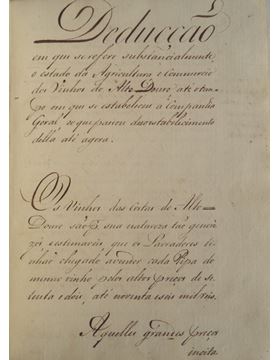 Deducção
em que se refere substancialmente
o estado da Agricultura e Commercio
dos Vinhos do Alto Douro até o tem=
po em que se estabeleceu a Companhia
Geral
della até agora.
Os Vinhos das Costas do Alto=
Douro são p. sua natureza tão
estimaveis, que os Lavradores ti=
nhão chegado a vender cada Pipa de
mesmo vinho pelos altos preços de se=
tenta e dois, até noventa e seis mil reis.
Aquelles grandes preços
incita